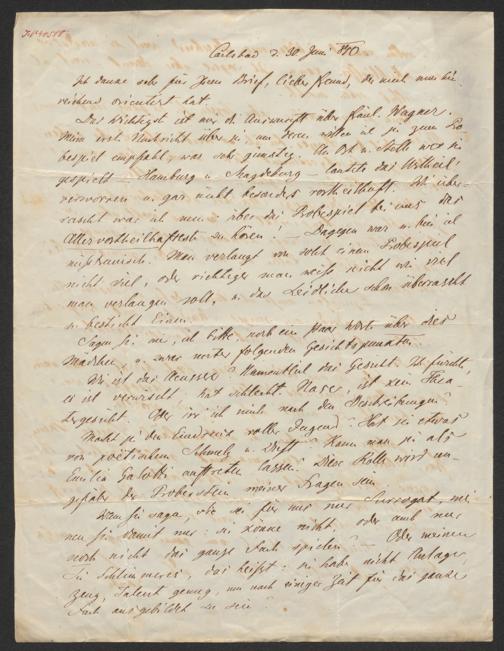 Carlsbad d. 30 Juni
Ich danke sehr für Ihren Brief, lieber Freund, der mich nun hin
reichend orientirt hat.
Das Wichtigste ist mir die Auskunft über Fräul. Wagner.
Mein erste Nachricht über sie, um deren willen ich sie zum Pro
bespiel empfahl, war sehr günstig. An Ort u. Stelle wo sie
gespielt – Hamburg u. Magdeburg – lautete das Urtheil
verworren u. gar nicht besonders vortheilhaft. Wie über-
rascht war ich nun über das Probespiel bei uns das
Allervortheilhafteste zu hören! – Dagegen war u. bin ich
mißtrauisch. Man verlangt von solch einem Probespiel
nicht viel, oder richtiger man weiß nicht wie viel
man verlangen soll, u. das Leidliche schon überrascht
u. besticht Einen.
Sagen Sie mir, ich bitte, noch ein Paar Worte über dies
Mädchen, u. zwar unter folgenden Gesichtspunkten.
Wie ist das Aeussere? Namentlich das Gesicht. Ich fürchte,
es ist verwischt, hat schlechte Nase, ist kein Thea
tergesicht. Oder irr' ich mich nach den Beschreibungen?
Macht sie den Eindruck voller Jugend? Hat sie etwas
von poetischem Schmelz u. Duft? Kann man sie als
Emilia Galotti auftreten lassen? Diese Rolle wird un-
gefähr der Probirstein meiner Fragen sein.
Wenn Sie sagen, sie sei für mich nur Surrogat, mei
nen Sie damit nur: sie könne nicht, oder auch nur
noch nicht das ganze Fach spielen? – Oder meinen
Sie Schlimmeres, das heißt: sie habe nicht Anlage,
Zeug, Talent genug, um nach einiger Zeit für das ganze
Fach ausgebildet zu sein?